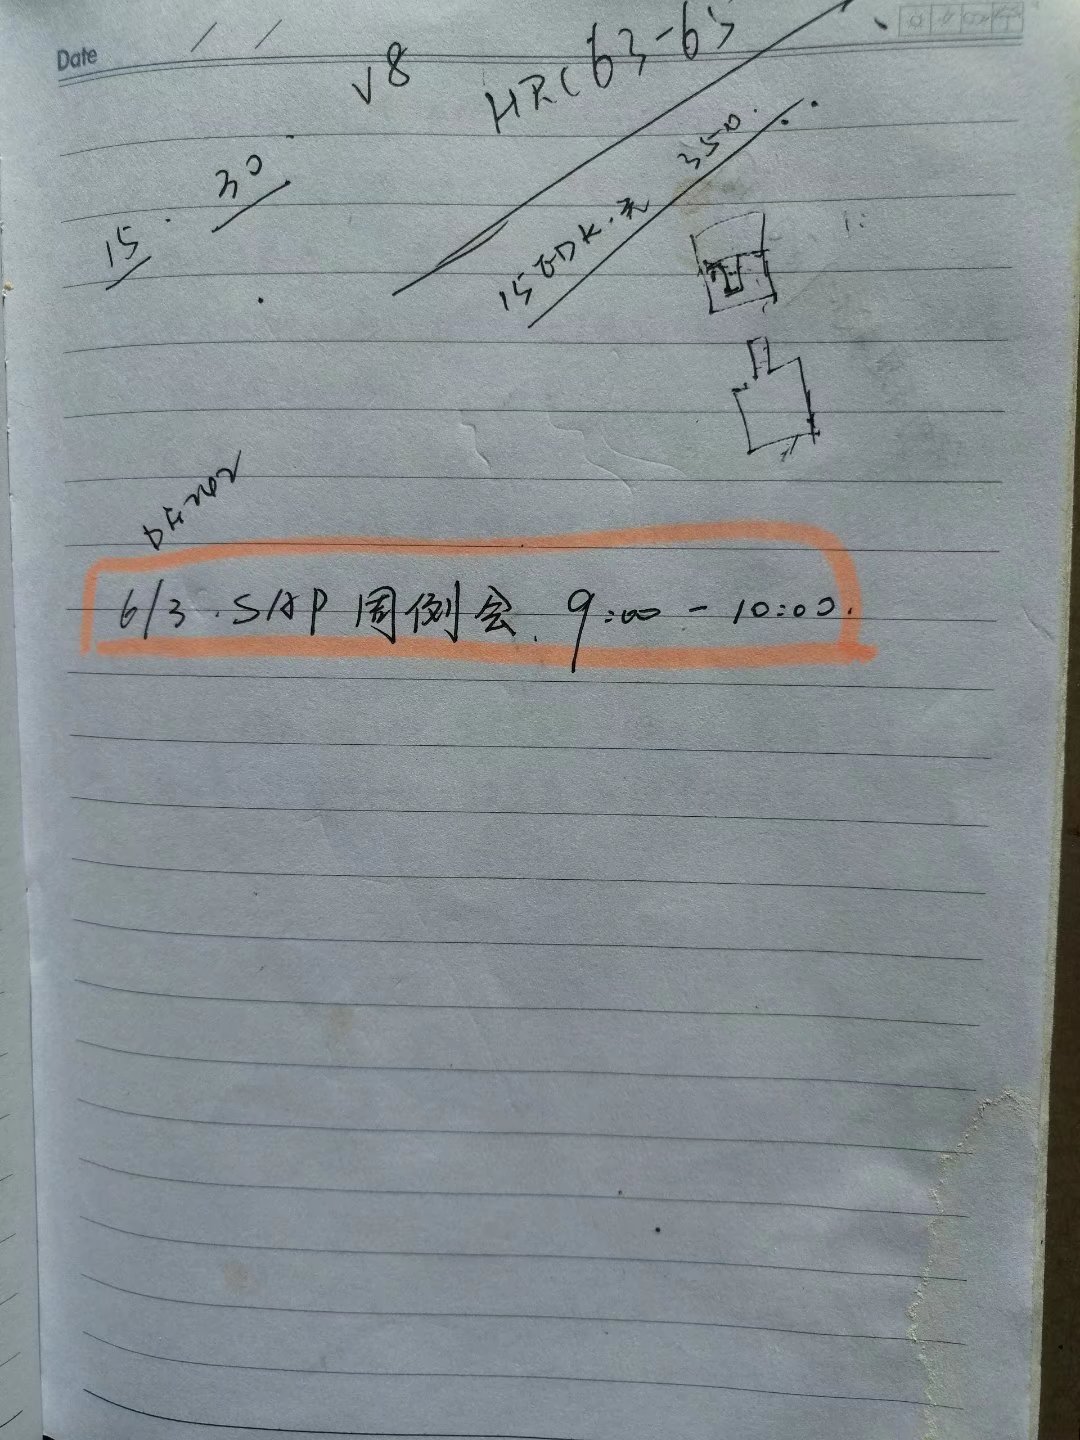 Date
V8
HRC 63-65
30
15
350
6/3. SAP 周例会. 9:00 - 10:00.